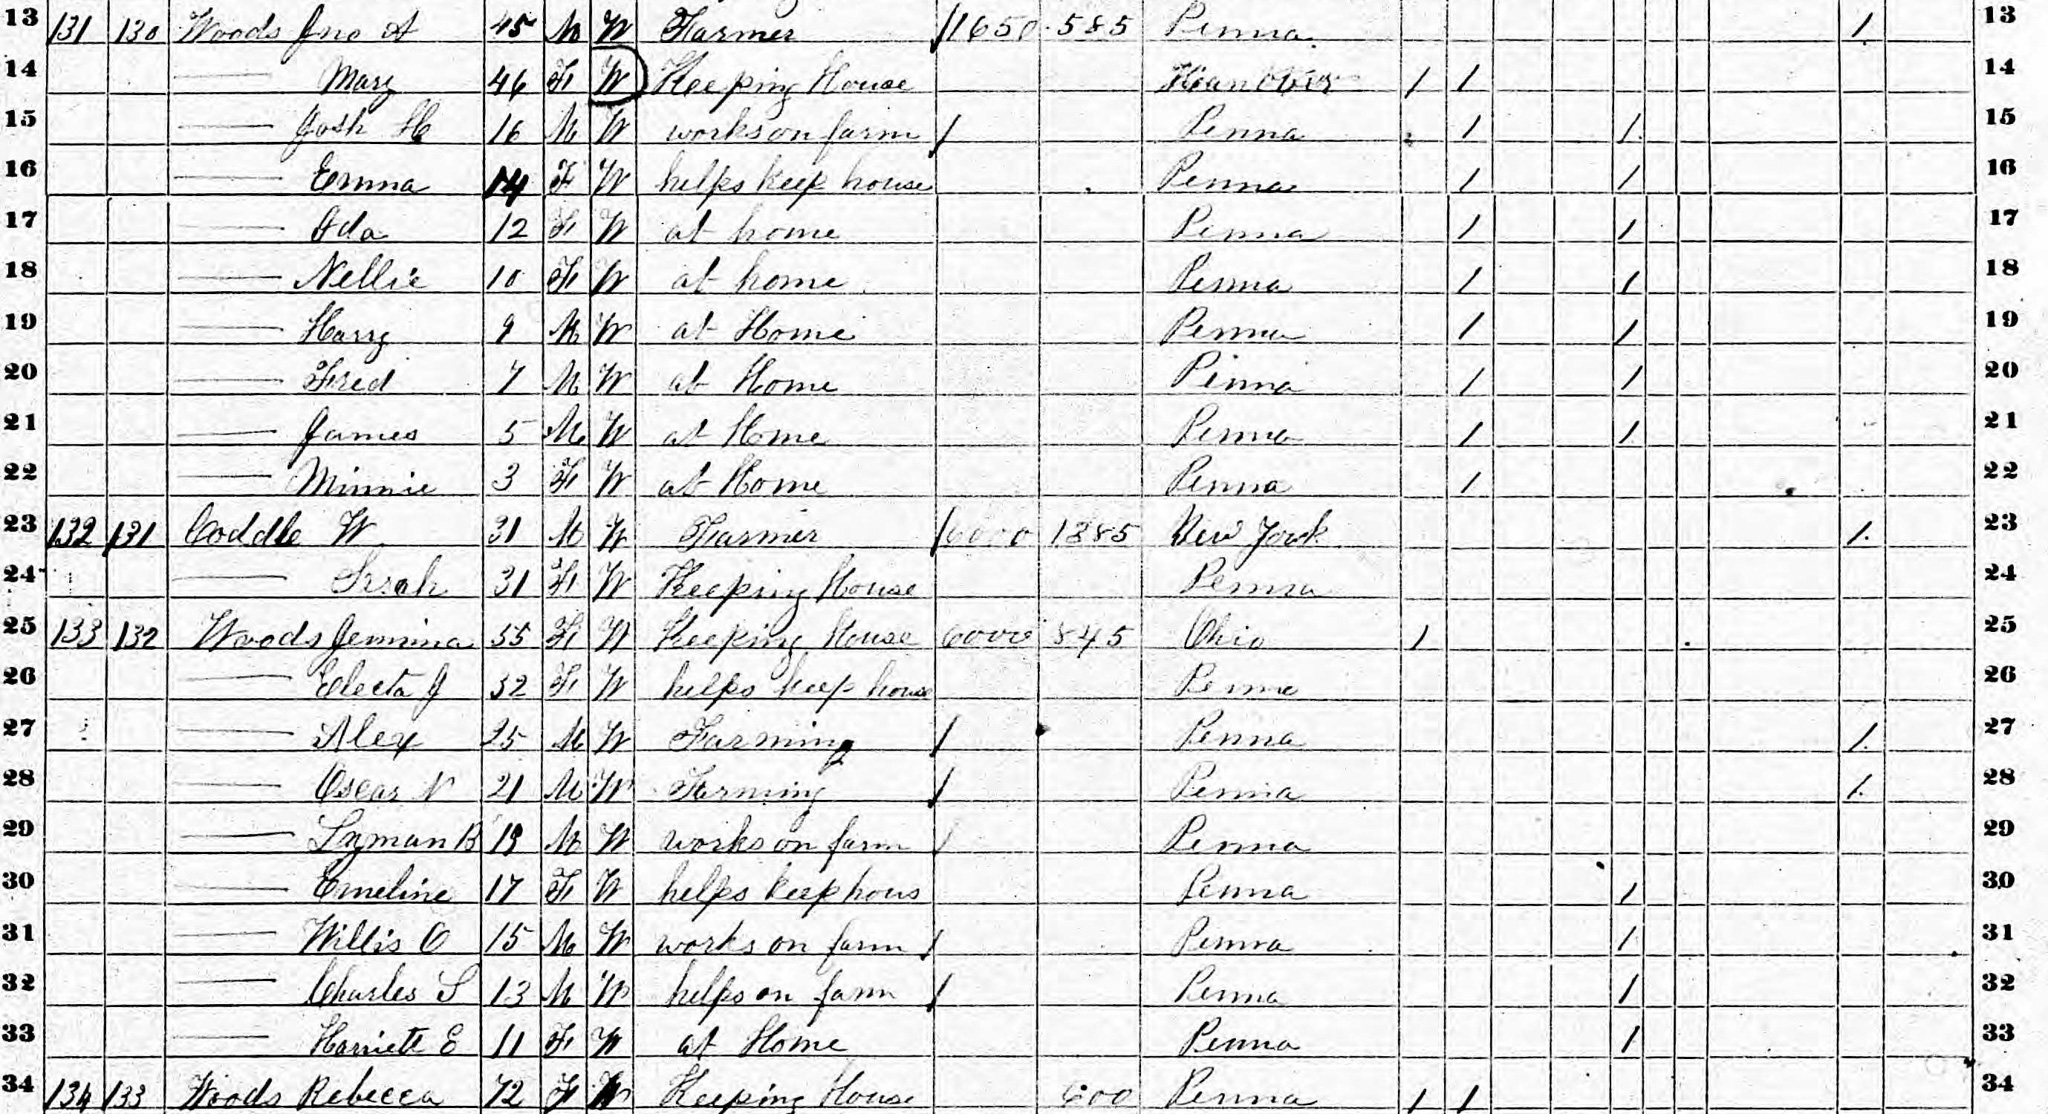 13 131 130 Woods Jno A 45 M W Farmer / 1650 585 Penna 1 13
14 —— Mary 46 F W Keeping House Hanover 1 1 14
15 —— Josh H 16 M W works on farm / Penna 1 1 15
16 —— Emma 14 F W helps keep house Penna 1 1 16
17 —— Ida 12 F W at home Penna 1 1 17
18 —— Nellie 10 F W at home Penna 1 1 18
19 —— Harry 9 M W at Home Penna 1 1 19
20 —— Fred 7 M W at Home Penna 1 1 20
21 —— James 5 M W at Home Penna 1 1 21
22 —— Minnie 3 F W at Home Penna 1 22
23 132 131 Coddle W 31 M W Farmer / 6000 1385 New York 1 23
24 —— Sarah 31 F W Keeping House Penna 24
25 133 132 Woods Jemima 55 F W Keeping House 6000 845 Ohio 1 25
26 —— Electa J 32 F W helps keep house Penna 26
27 —— Alex 25 M W Farming / Penna 1 27
28 —— Oscar N 21 M W Farming / Penna 1 28
29 —— Lyman B 19 M W works on farm / Penna 29
30 —— Emeline 17 F W helps keep hous Penna 1 30
31 —— Willis O 15 M W works on farm / Penna 1 31
32 —— Charles S 13 M W helps on farm / Penna 1 32
33 —— Harriett E 11 F W at Home Penna 1 33
34 134 133 Woods Rebecca 72 F W Keeping House 600 Penna 1 1 34